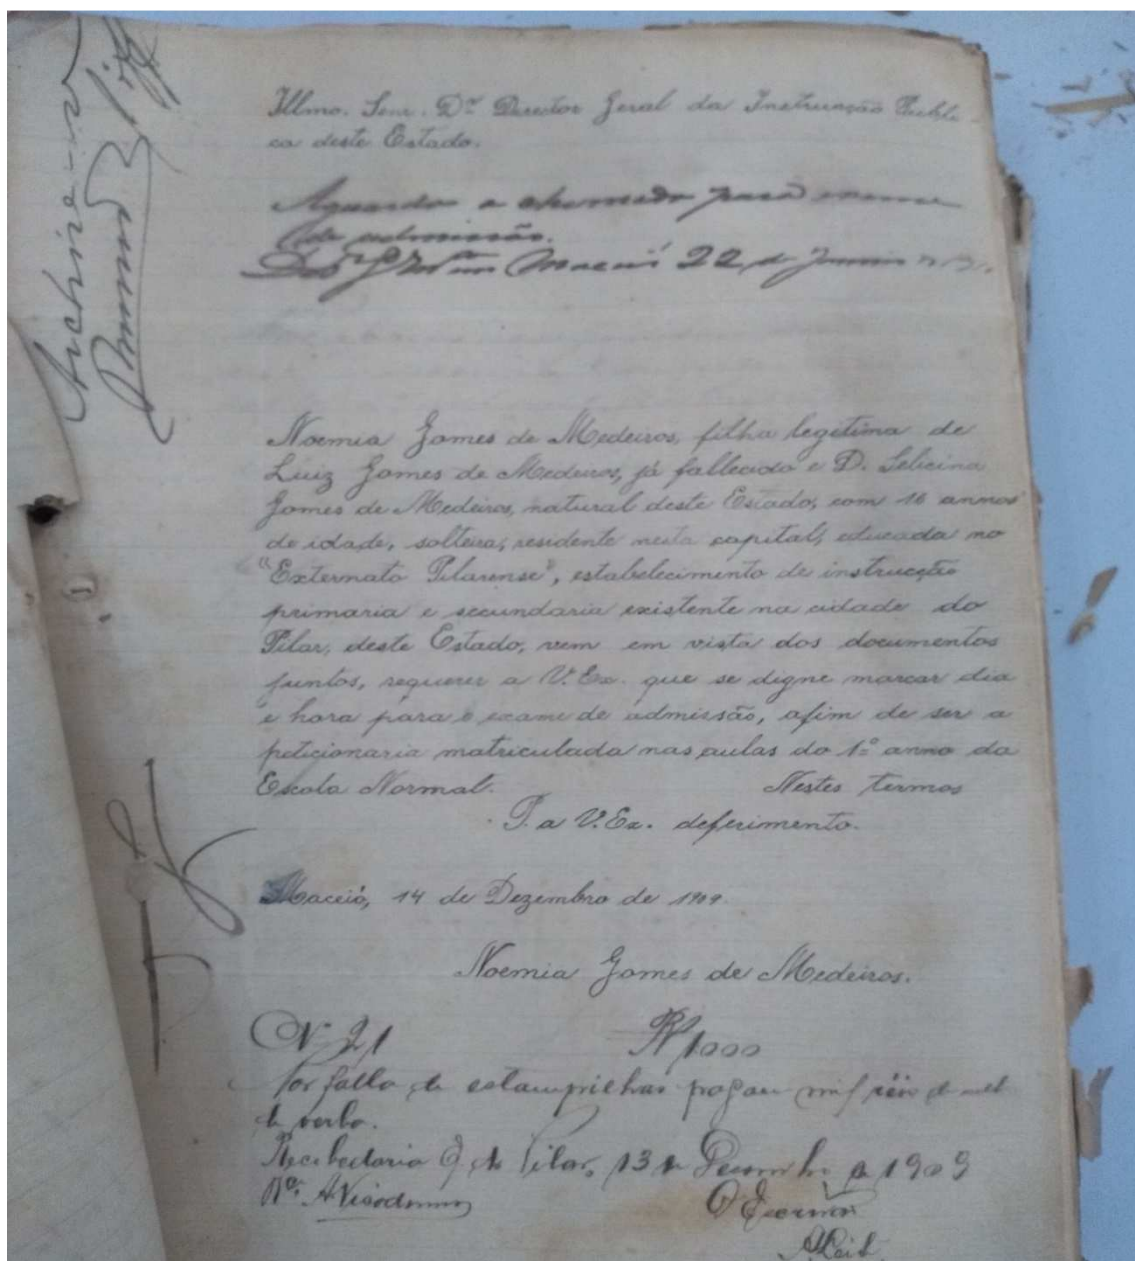 Illmo. Senr. Dr. Director Geral da Instrucção Publi
ca deste Estado.
Aguarda a chamada para exame
de admissão.
Maceió 22 de
Noemia Gomes de Medeiros, filha legitima de
Luiz Gomes de Medeiros, já fallecido e D. Felicina
Gomes de Medeiros, natural deste Estado, com 16 annos
de idade, solteira, residente nesta capital, educada no
"Externato Pilarense", estabelecimento de instrucção
primaria e secundaria existente na cidade do
Pilar, deste Estado, vem em vista dos documentos
juntos, requerer a V. Ex. que se digne marcar dia
e hora para o exame de admissão, afim de ser a
peticionaria matriculada nas aulas do 1º anno da
Escola Normal. Nestes termos
P. a V. Ex. deferimento.
Maceió, 14 de Dezembro de 1909.
Noemia Gomes de Medeiros.
Nº 21 Rs 1000
Por falta de estampilhas pagou mil réis de
verba.
Recebedoria de Pilar, 13 de Dezembro de 1909
O Escrivão
Archive-se